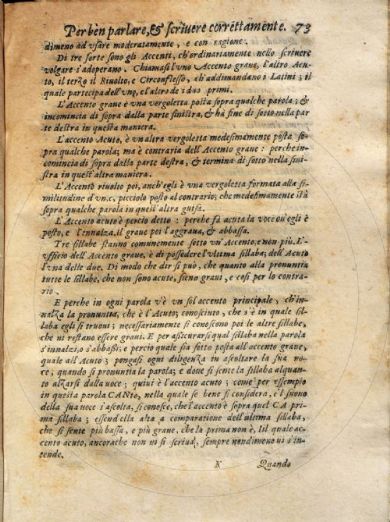 Per ben parlare, & scriuere correttamente. 73
dimeno ad vsare moderatamente, e con ragione.
Di tre sorte sono gli Accenti, ch'ordinariamente nello scriuere
volgare s'adoperano. Chiamasi l'vno Accento graue, l'altro Acu-
to, il terzo il Riuolto, e Circonflesso, ch'addimandano i Latini; il
quale partecipa dell'vno, e l'altro de i duo primi.
L'Accento graue è vna vergoletta posta sopra qualche parola; &
incomincia di sopra dalla parte sinistra, & hà fine di sotto nella par
te destra in questa maniera.
L'accento Acuto, è vn'altra vergoletta medesimamente posta so-
pra qualche parola; ma è contraria dell'Accento graue: perche in-
comincia di sopra dalla parte destra, & termina di sotto nella sini-
stra in quest'altra maniera.
L'Accento riuolto poi, anch'egli è vna vergoletta formata alla si-
militudine d'vn c, picciolo posto al contrario; che medesimamente stà
sopra qualche parola in questa altra guisa.
L'Accento acuto è perciò detto: perche fà acuta la voce ou'egli è
posto, e l'innalza, il graue poi l'aggraua, & abbassa.
Tre sillabe stanno comunemente sotto vn'Accento, e non più. L'-
vfficio dell'Accento graue, è di possedere l'vltima sillaba; dell'Acuto
l'vna delle due. Di modo che dir si può, che quanto alla pronuntia
tutte le sillabe, che non sono acute, sieno graui, e così per lo contra-
rio.
E perche in ogni parola v'è vn sol accento principale, ch'in-
nalza la pronuntia, che è l'Acuto; conosciuto, che s'è in quale sil-
laba egli si truoui; necessariamente si conoscono poi le altre sillabe,
che vi restano essere graui. E per assicurarsi qual sillaba nella parola
s'innalzi, o s'abbassi; e perciò quale sia sotto posta all'accento graue,
quale all'Acuto; pongasi ogni diligenza in ascoltare la sua vo-
ce, quando si pronuntia la parola; e doue si sente la sillaba alquan-
to alzarsi dalla voce; quiui è l'accento acuto; come per essempio
in questa parola CANto, nella quale se bene si considera, e l suono
della sua voce s'ascolta, si conosce, che l'accento è sopra quel CA pri-
ma sillaba; essend'ella alta a comparatione dell'vltima sillaba,
che si sente più bassa, e più graue, che la prima non è, Il qual ac-
cento acuto, ancorache non vi si scriua, sempre nondimeno vi s'in-
tende.
K Quando